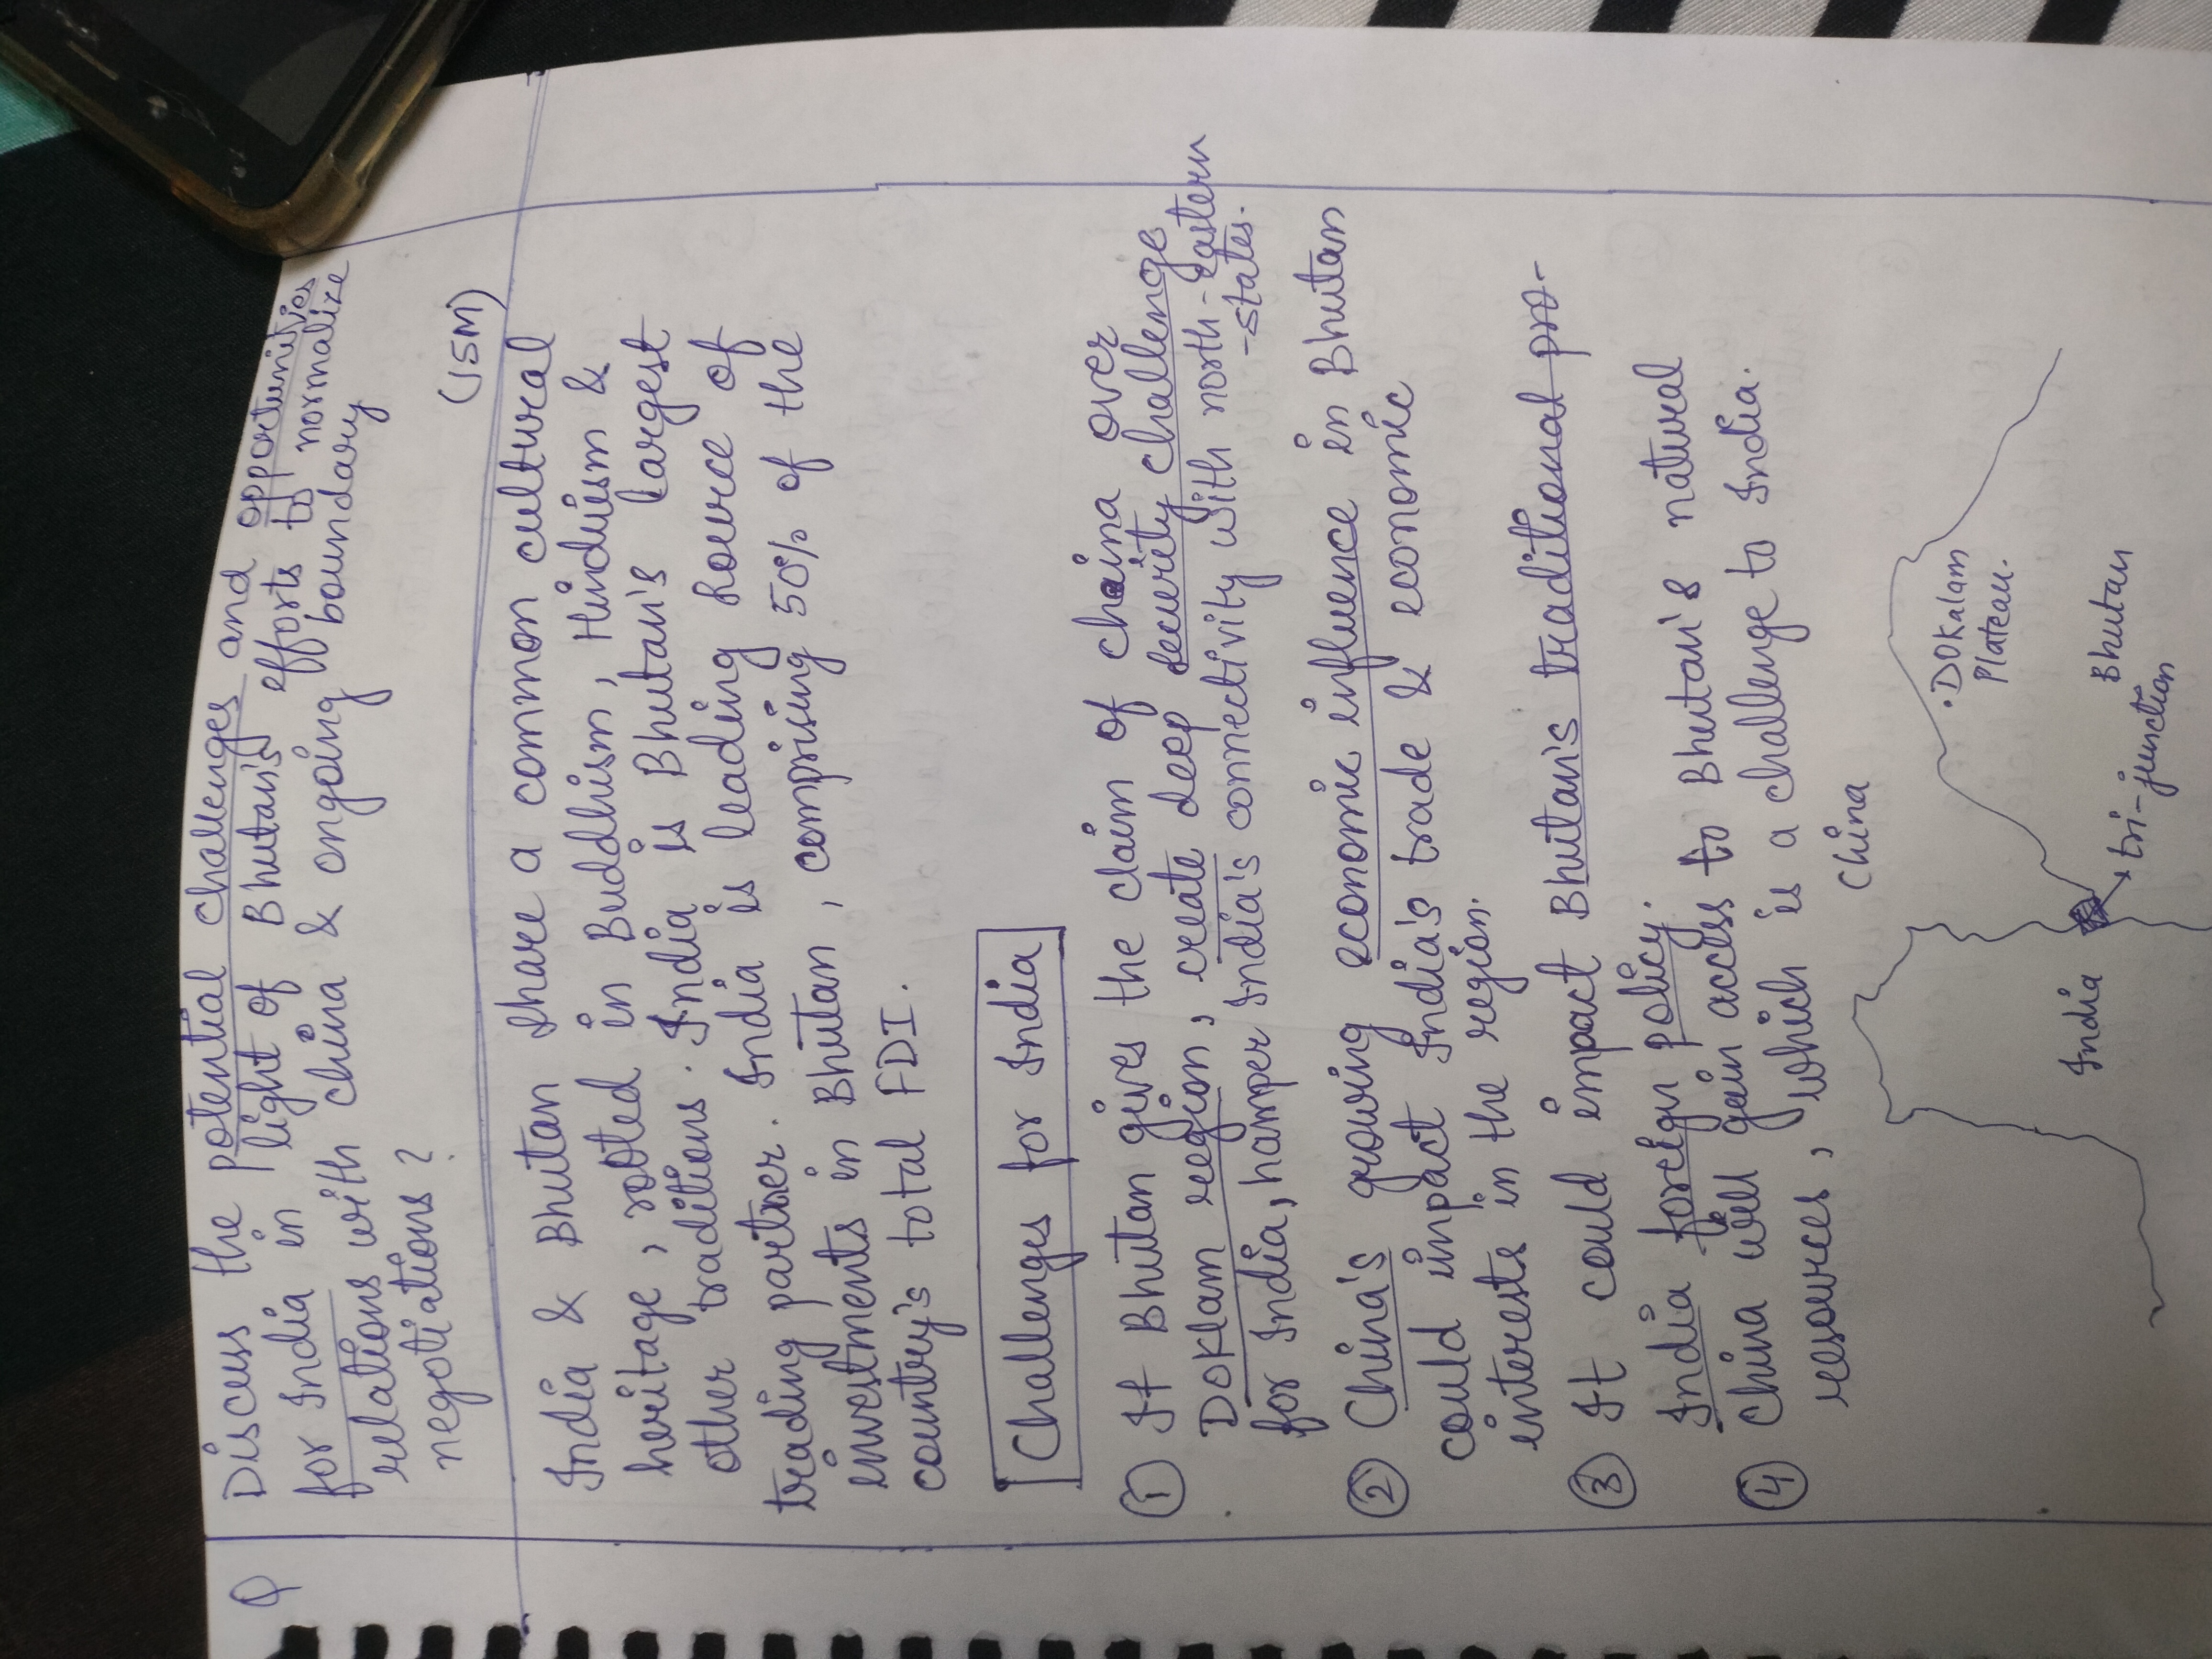 Q Discuss the potential challenges and opportunities
for India in light of Bhutan's efforts to normalize
relations with China & ongoing boundary
negotiations ?
(15M)
India & Bhutan share a common cultural
heritage, rooted in Buddhism, Hinduism &
other traditions. India is Bhutan's largest
trading partner. India is leading source of
investments in Bhutan, comprising 50% of the
country's total FDI.
Challenges for India
① If Bhutan gives the claim of china over
Doklam region, create deep security challenge
for India, hamper India's connectivity with north-eastern
-states.
② China's growing economic influence in Bhutan
could impact India's trade & economic
interests in the region.
③ It could impact Bhutan's traditional pro-
India foreign policy.
④ China will gain access to Bhutan's natural
resources, which is a challenge to India.
China
• DOKalam
Plateau.
India
Bhutan
tri-junction